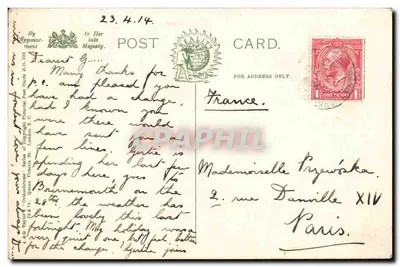 23.4.14.
By
Appoint-
ment
to Her
late
Majesty.
POST
CARD.
FOR ADDRESS ONLY.
ONE PENNY
Dearest G
Many thanks for
p.c. am pleased you
have had a change,
had I known you
were there would
have sent you a
few lines. Gertie is
spending her last few
days here, goes to
Bournemouth on the
28th the weather has
been lovely this last
fortnight. My holiday was a
very quiet one, but feel better
for the change. Gertie joins
France.
Mademoiselle
2 rue Danville XIV
Paris.
CPARTHELP